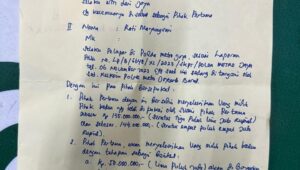 Selaku istri dari Jaya
Selanjutnya disebut sebagai Pihak Pertama
II Nama : Rati
Nik :
Selaku Pelapor di Polda metro jaya sesuai Laporan
Polisi No. LP/B/ /XI/2023/SPKT/POLDA METRO JAYA
tgl. 06 November 2023 yang saat ini sedang di tangani oleh
Sat. Reskrim Polres Metro Jakarta Barat.
Dengan ini Para Pihak Bersepakat :
1. Pihak Pertama dengan ini bersedia menyelesaikan Uang milik
Pihak kedua yg ada di polisi oleh suami Pihak pertama
sebesar Rp 135.000.000,- (seratus Tiga Puluh lima Juta Rupiah)
dan sebesar 144.000.000,- (seratus empat puluh empat juta
Rupiah).
2. Pihak Pertama akan menyelesaikan Uang milik Pihak kedua
dengan tahapan sebagai berikut :
a. Rp. 50.000.000,- (Lima Puluh Juta) akan di